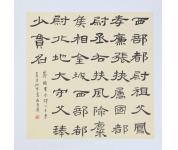 西部都尉祖父鳳
孝廉張掖屬國都
尉丞右扶風隃麋
侯相金城西部都
尉北地大守父琫
少貫名